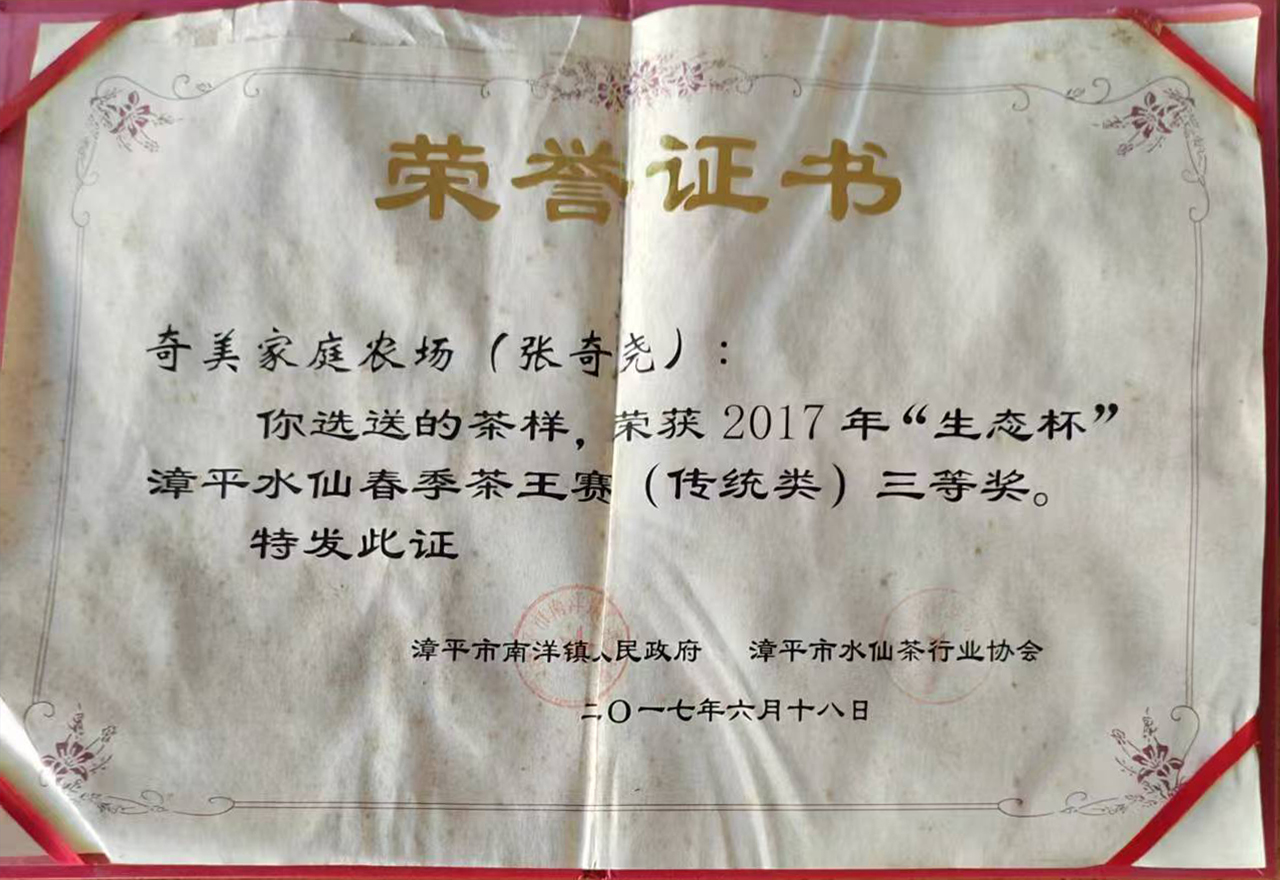 荣誉证书
奇美家庭农场（张奇尧）：
你选送的茶样，荣获 2017 年“生态杯”
漳平水仙春季茶王赛（传统类）三等奖。
特发此证
漳平市南洋镇人民政府 漳平市水仙茶行业协会
二〇一七年六月十八日